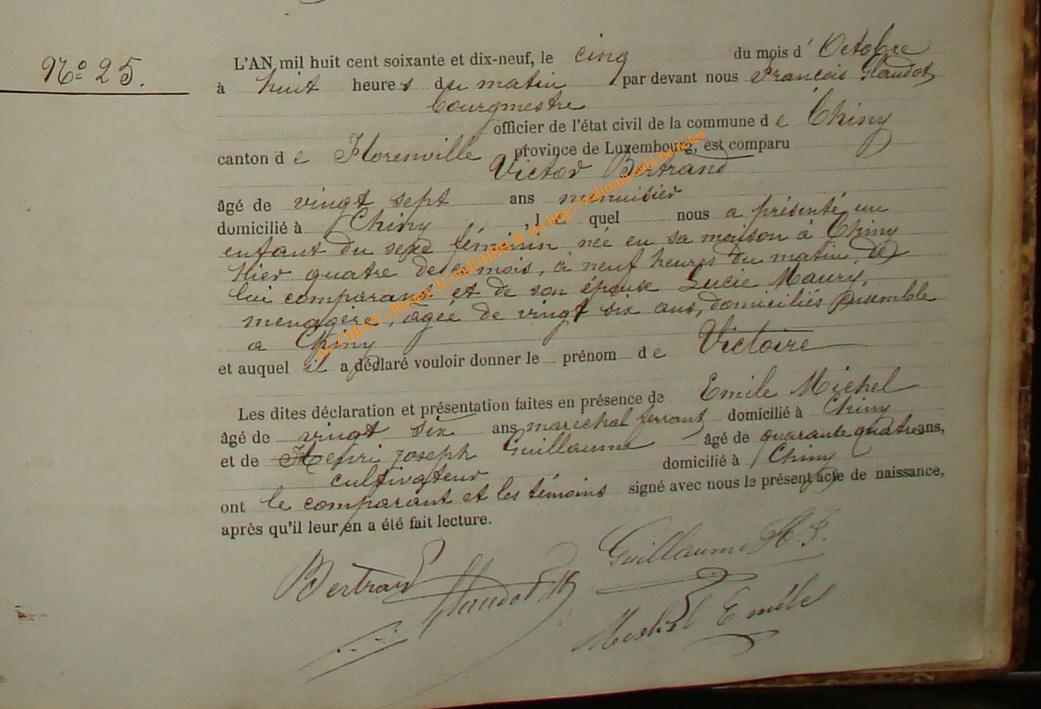 N° 25.
L'AN, mil huit cent soixante et dix-neuf, le cinq du mois d' Octobre
à huit heures du matin par devant nous François Glaudot
bourgmestre
officier de l'état civil de la commune de Chiny
canton de Florenville province de Luxembourg, est comparu
Victor Bertrand
âgé de vingt sept ans menuisier
domicilié à Chiny lequel nous a présenté un
enfant du sexe féminin née en sa maison à Chiny
hier quatre de ce mois, à neuf heures du matin, de
lui comparant et de son épouse Lucie Maury,
ménagère, âgée de vingt six ans, domiciliés ensemble
à Chiny
et auquel il a déclaré vouloir donner le prénom de Victoire
Les dites déclaration et présentation faites en présence de Emile Michel
âgé de vingt six ans maréchal ferrant domicilié à Chiny
et de Henri Joseph Guillaume âgé de quarante quatre ans,
cultivateur domicilié à Chiny
ont le comparant et les témoins signé avec nous le présent acte de naissance,
après qu'il leur en a été fait lecture.
Bertrand
Glaudot
Guillaume H. J.
Michel Emile